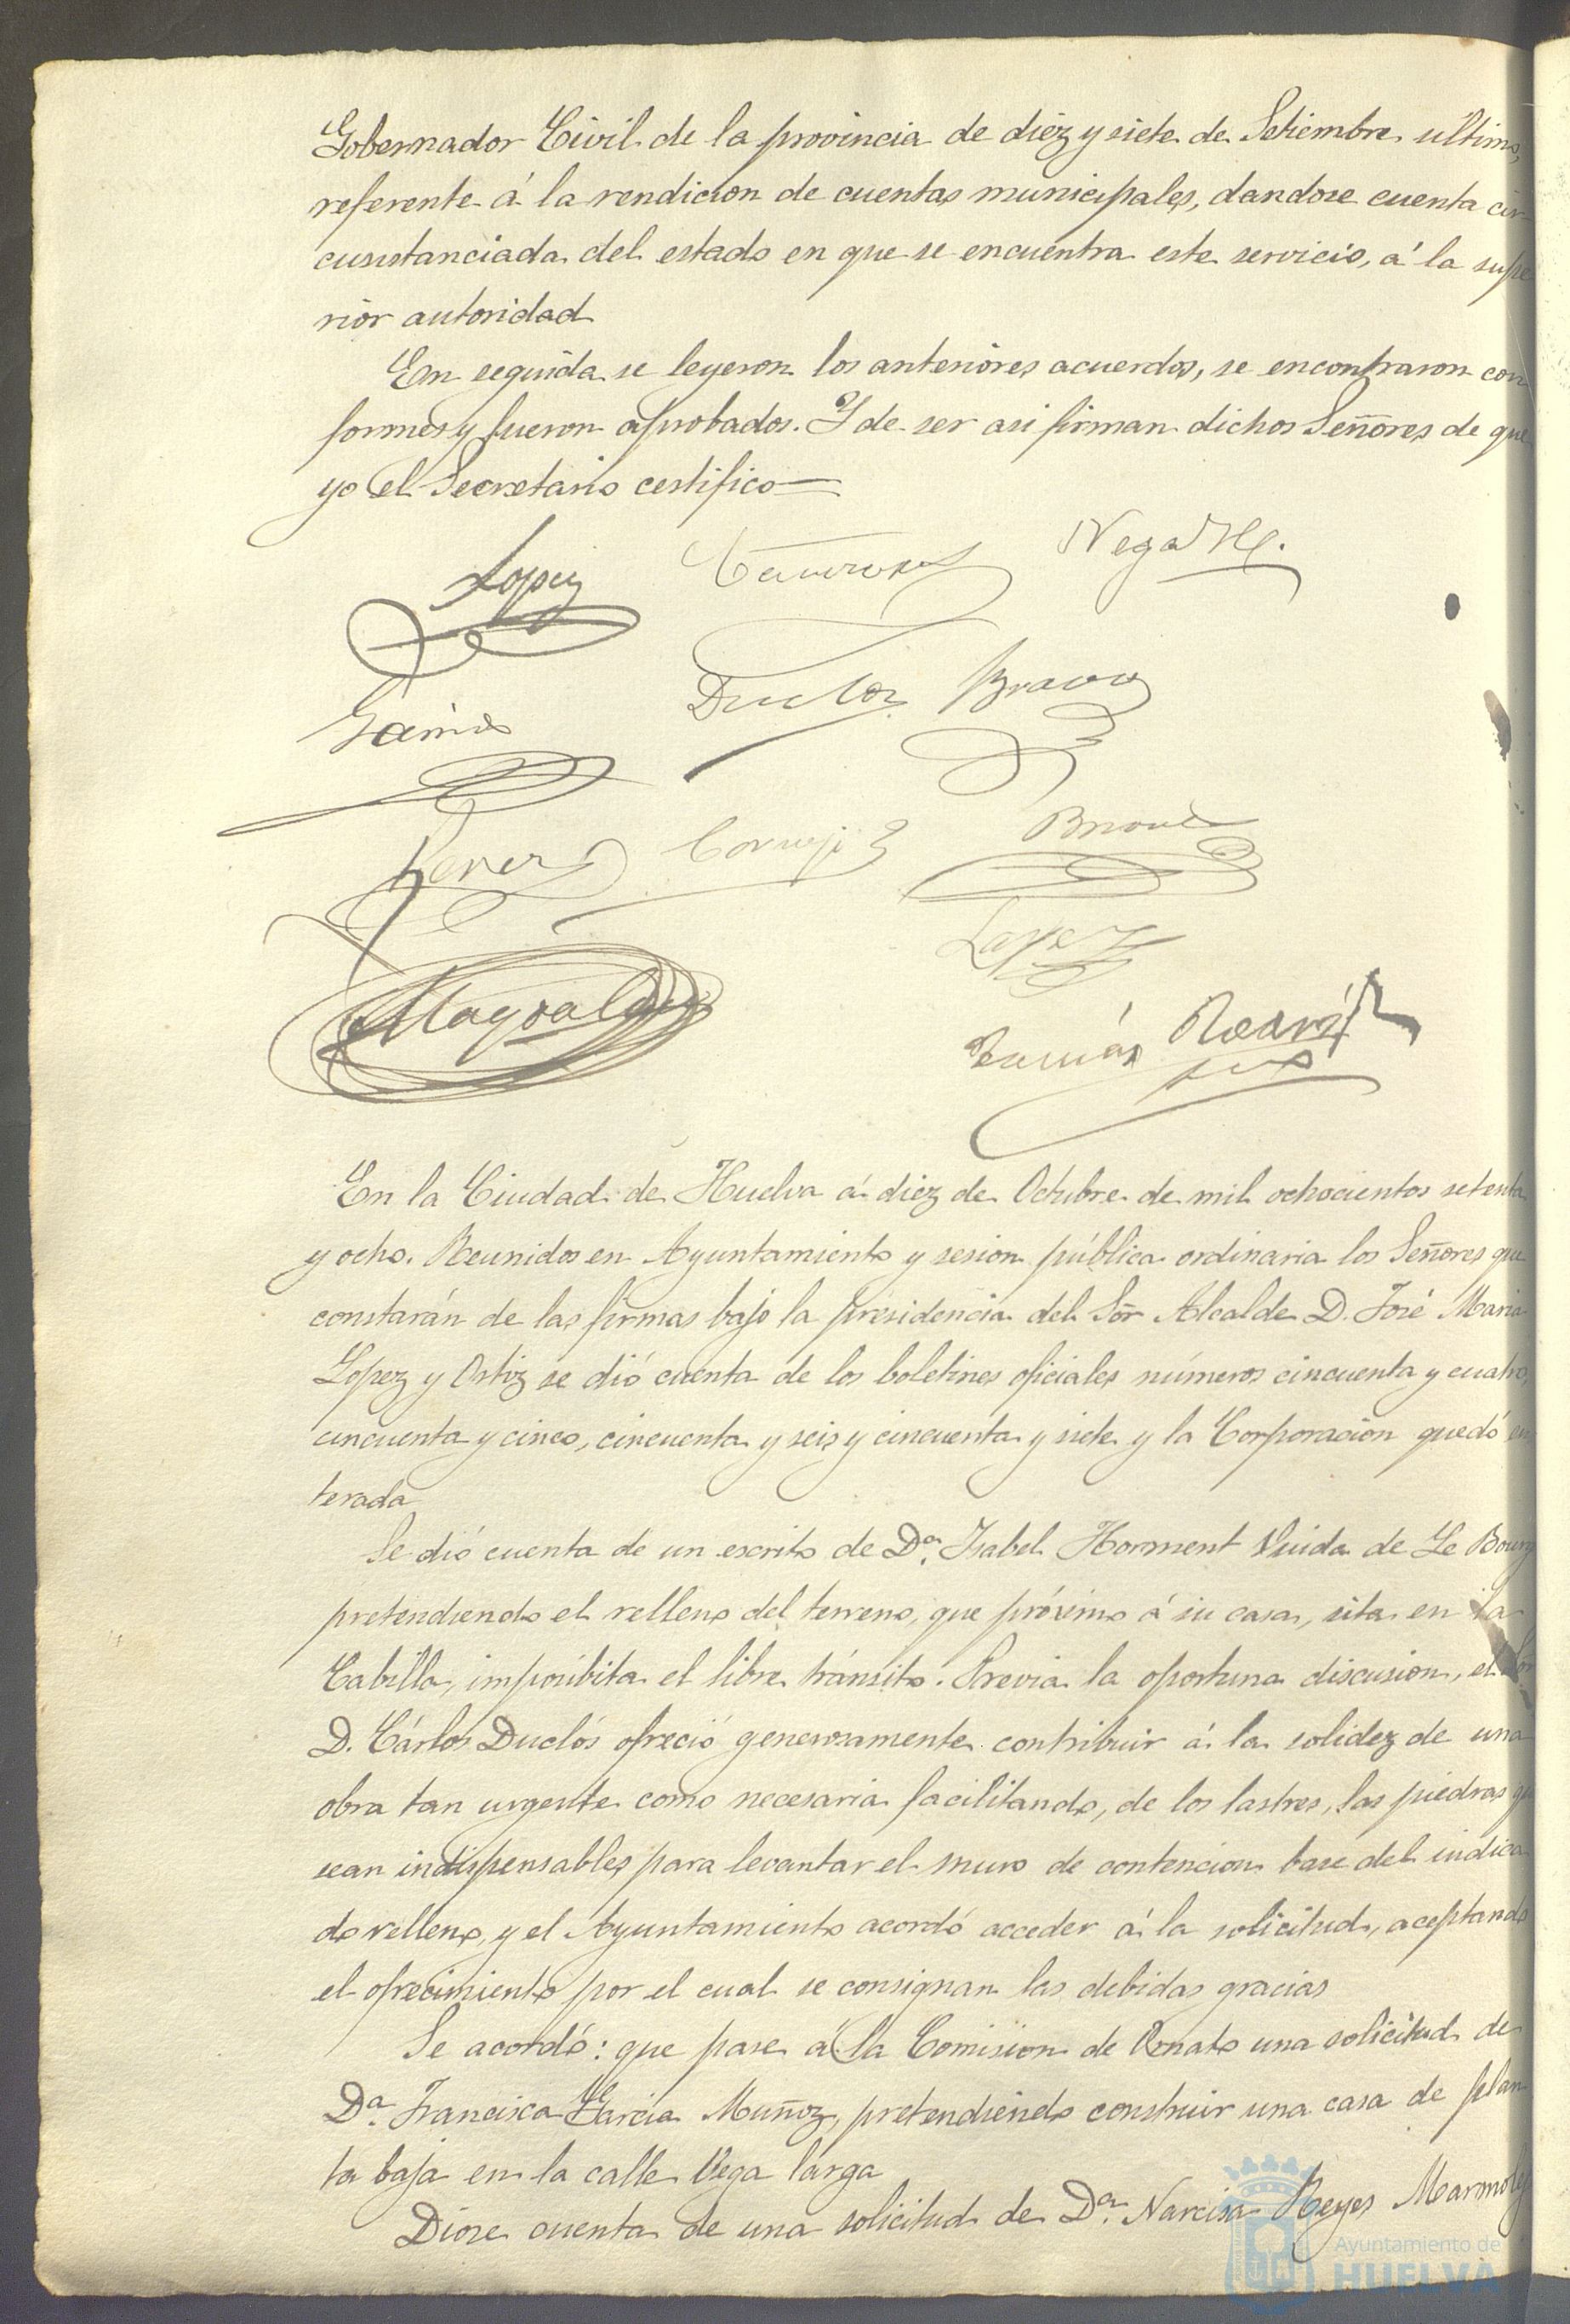 Gobernador Civil de la provincia de diez y siete de Setiembre último,
referente á la rendicion de cuentas municipales, dandose cuenta cir
cunstanciada del estado en que se encuentra este servicio, á la supe
rior autoridad
En seguida se leyeron los anteriores acuerdos, se encontraron con
formes y fueron aprobados. Y de ser asi firman dichos Señores de que
yo el Secretario certifico
Lopez
Vega
Garcia Bravo
Perez Cornejo
Lopez
Tomás
En la Ciudad de Huelva á diez de Octubre de mil ochocientos setenta
y ocho. Reunidos en Ayuntamiento y sesion pública ordinaria los Señores que
constarán de las firmas bajo la presidencia del Sor Alcalde D. José Maria
Lopez y Ortiz se dió cuenta de los boletines oficiales números cincuenta y cuatro,
cincuenta y cinco, cincuenta y seis y cincuenta y siete y la Corporacion quedó en
terada
Se dió cuenta de un escrito de Da. Isabel Horment Viuda de Le Bourg
pretendiendo el relleno del terreno, que próximo á su casa, sita en la
Cabilla, imposibita el libre tránsito. Previa la oportuna discusion, el Sor
D. Cárlos Duclós ofreció generosamente contribuir á la solidez de una
obra tan urgente como necesaria facilitando, de los lastres, las piedras qe
sean indispensables para levantar el muro de contencion base del indica
do relleno, y el Ayuntamiento acordó acceder á la solicitud, aceptando
el ofrecimiento por el cual se consignan las debidas gracias
Se acordó: que pase á la Comision de Ornato una solicitud de
Da. Francisca Garcia Muñoz, pretendiendo construir una casa de plan
ta baja en la calle Vega larga
Diose cuenta de una solicitud de Da. Narcisa Reyes Marmol
Ayuntamiento de
HUELVA